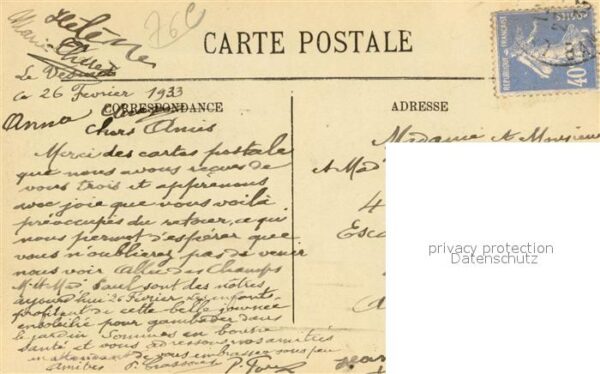 Hélène
76C
Marie Thérèse
CARTE POSTALE
Le Vésinet
REPUBLIQUE FRANÇAISE
POSTES
40
ce 26 Fevrier 1933
CORRESPONDANCE
ADRESSE
Anna
chers Amis
Madame et Monsieur
Merci des cartes postale
que nous avons reçues de
A Mad
vous trois et apprenons
avec joie que vous voilà
4
préoccupés du retour, ce qui
Esca
nous permet d'espérer que
vous n'oublierez pas de venir
privacy protection
Datenschutz
nous voir Allée des Champs
Mr et Mad Paul sont des nôtres
aujourd'hui 26 Fevrier les enfants
profitent de cette belle journée
ensoleillée pour gambader dans
le jardin Sommes en bonne
santé et vous adressons nos amitiés
en attendant de vous embrasser sous peu
Amitiés